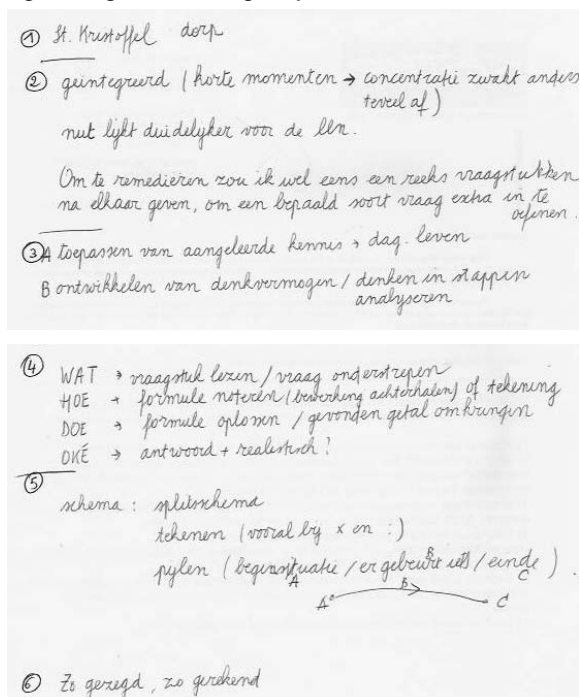 ① St. Kristoffel dorp
② geïntegreerd (korte momenten → concentratie zwakt anders
teveel af)
nut lijkt duidelijker voor de lln.
Om te remediëren zou ik wel eens een reeks vraagstukken
na elkaar geven, om een bepaald soort vraag extra in te
oefenen.
③ A toepassen van aangeleerde kennis → dag. leven
B ontwikkelen van denkvermogen / denken in stappen
analyseren
④ WAT → vraagstuk lezen / vraag onderstrepen
HOE → formule noteren (bewerking achterhalen) of tekening
DOE → formule oplossen / gevonden getal omkringen
OKÉ → antwoord + realistisch?
⑤
schema : splitsschema
tekenen (vooral bij × en :)
pijlen (beginsituatie / er gebeurt iets / einde).
A B C
A B C
⑥ Zo gezegd, zo gerekend